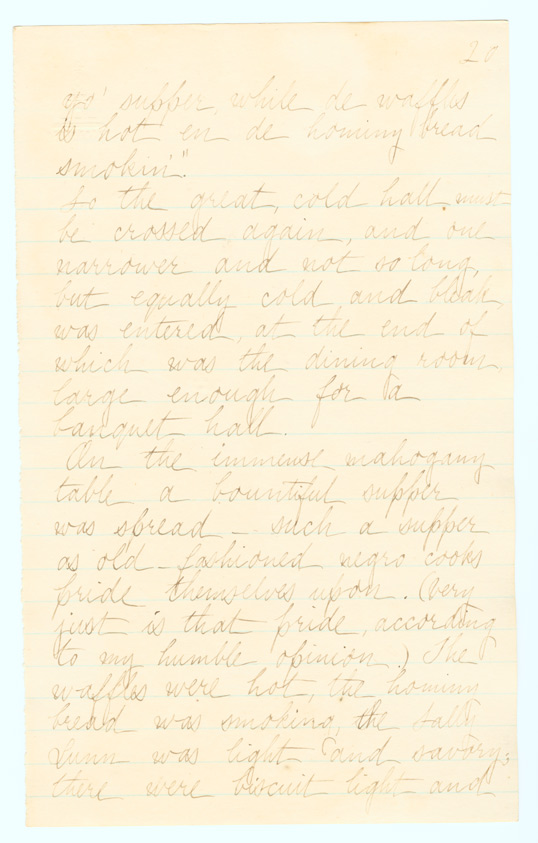 20
yo' supper, while de waffles
is hot en de hominy bread
smokin'."
So the great, cold hall must
be crossed again, and one
narrower and not so long,
but equally cold and bleak,
was entered, at the end of
which was the dining room,
large enough for a
banquet hall.
On the immense mahogany
table a bountiful supper
was spread – such a supper
as old-fashioned negro cooks
pride themselves upon. (Very
just is that pride, according
to my humble opinion.) The
waffles were hot, the hominy
bread was smoking, the Sally
Lunn was light and savory;
there were biscuit light and